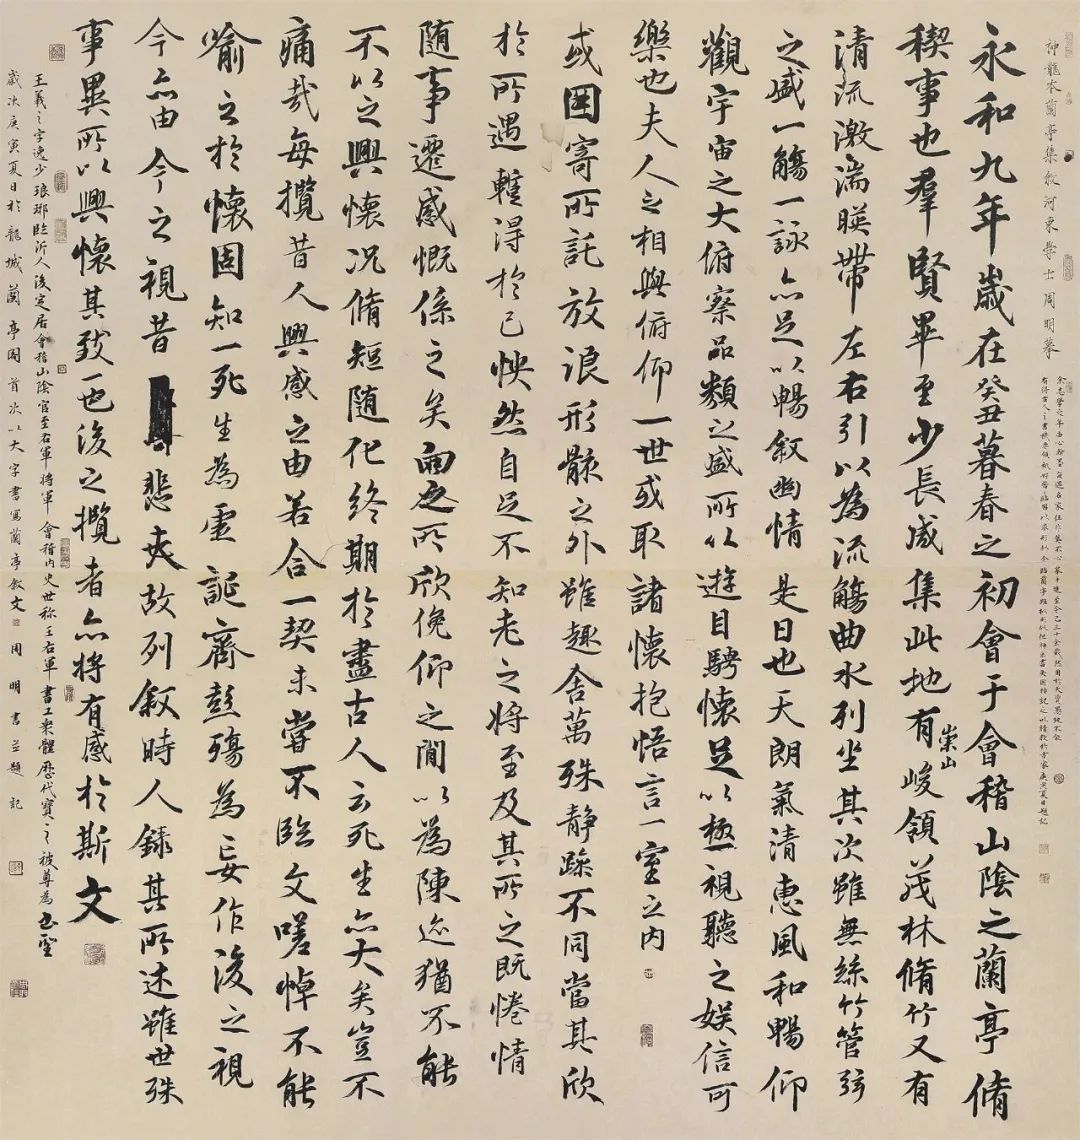 神龍本蘭亭集敘河東學士周明摹
永和九年歲在癸丑暮春之初會于會稽山陰之蘭亭脩
稧事也羣賢畢至少長咸集此地有
崇山
峻領茂林脩竹又有
清流激湍暎帶左右引以為流觴曲水列坐其次雖無絲竹管弦
之盛一觴一詠亦足以暢敘幽情是日也天朗氣清惠風和暢仰
觀宇宙之大俯察品類之盛所以遊目騁懷足以極視聽之娛信可
樂也夫人之相與俯仰一世或取諸懷抱悟言一室之內
或因寄所託放浪形骸之外雖趣舍萬殊静躁不同當其欣
於所遇蹔得於己怏然自足不知老之將至及其所之既惓情
隨事遷感慨係之矣向之所欣俛仰之閒以為陳迹猶不能
不以之興懷況脩短隨化終期於盡古人云死生亦大矣豈不
痛哉每攬昔人興感之由若合一契未嘗不臨文嗟悼不能
喻之於懷固知一死生為虛誕齊彭殤為妄作後之視
今亦由今之視昔悲夫故列敘時人錄其所述雖世殊
事異所以興懷其致一也後之攬者亦將有感於斯文
王羲之字逸少琅琊臨沂人後定居會稽山陰官至右軍將軍會稽內史世称王右軍書工衆體歷代寶之被尊為书聖
歲次庚寅夏日於龍城蘭亭閣首次以大字書寫蘭亭敘文周明書並題記